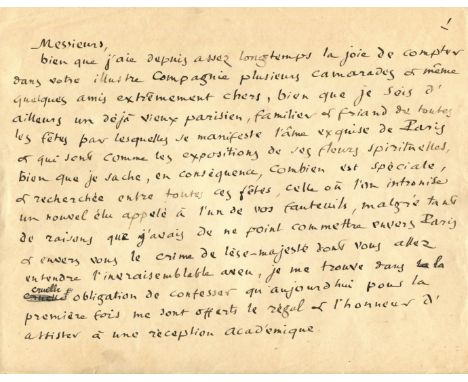 1
Messieurs,
bien que j'aie depuis assez longtemps la joie de compter
dans votre illustre Compagnie plusieurs camarades & même
quelques amis extrêmement chers, bien que je sois d'
ailleurs un déjà vieux parisien, familier & friand de toutes
les fêtes par lesquelles se manifeste l'âme exquise de Paris
& qui sont comme les expositions de ses fleurs spirituelles,
bien que je sache, en conséquence, combien est spéciale,
& recherchée entre toutes ces fêtes, celle où l'on intronise
un nouvel élu appelé à l'un de vos fauteuils, malgré tant
de raisons que j'avais de ne point commettre envers Paris
& envers vous le crime de lèse-majesté dont vous allez
entendre l'invraisemblable aveu, je me trouve dans la
cruelle
obligation de confesser qu'aujourd'hui pour la
première fois me sont offerts le régal & l'honneur d'
assister à une réception académique.